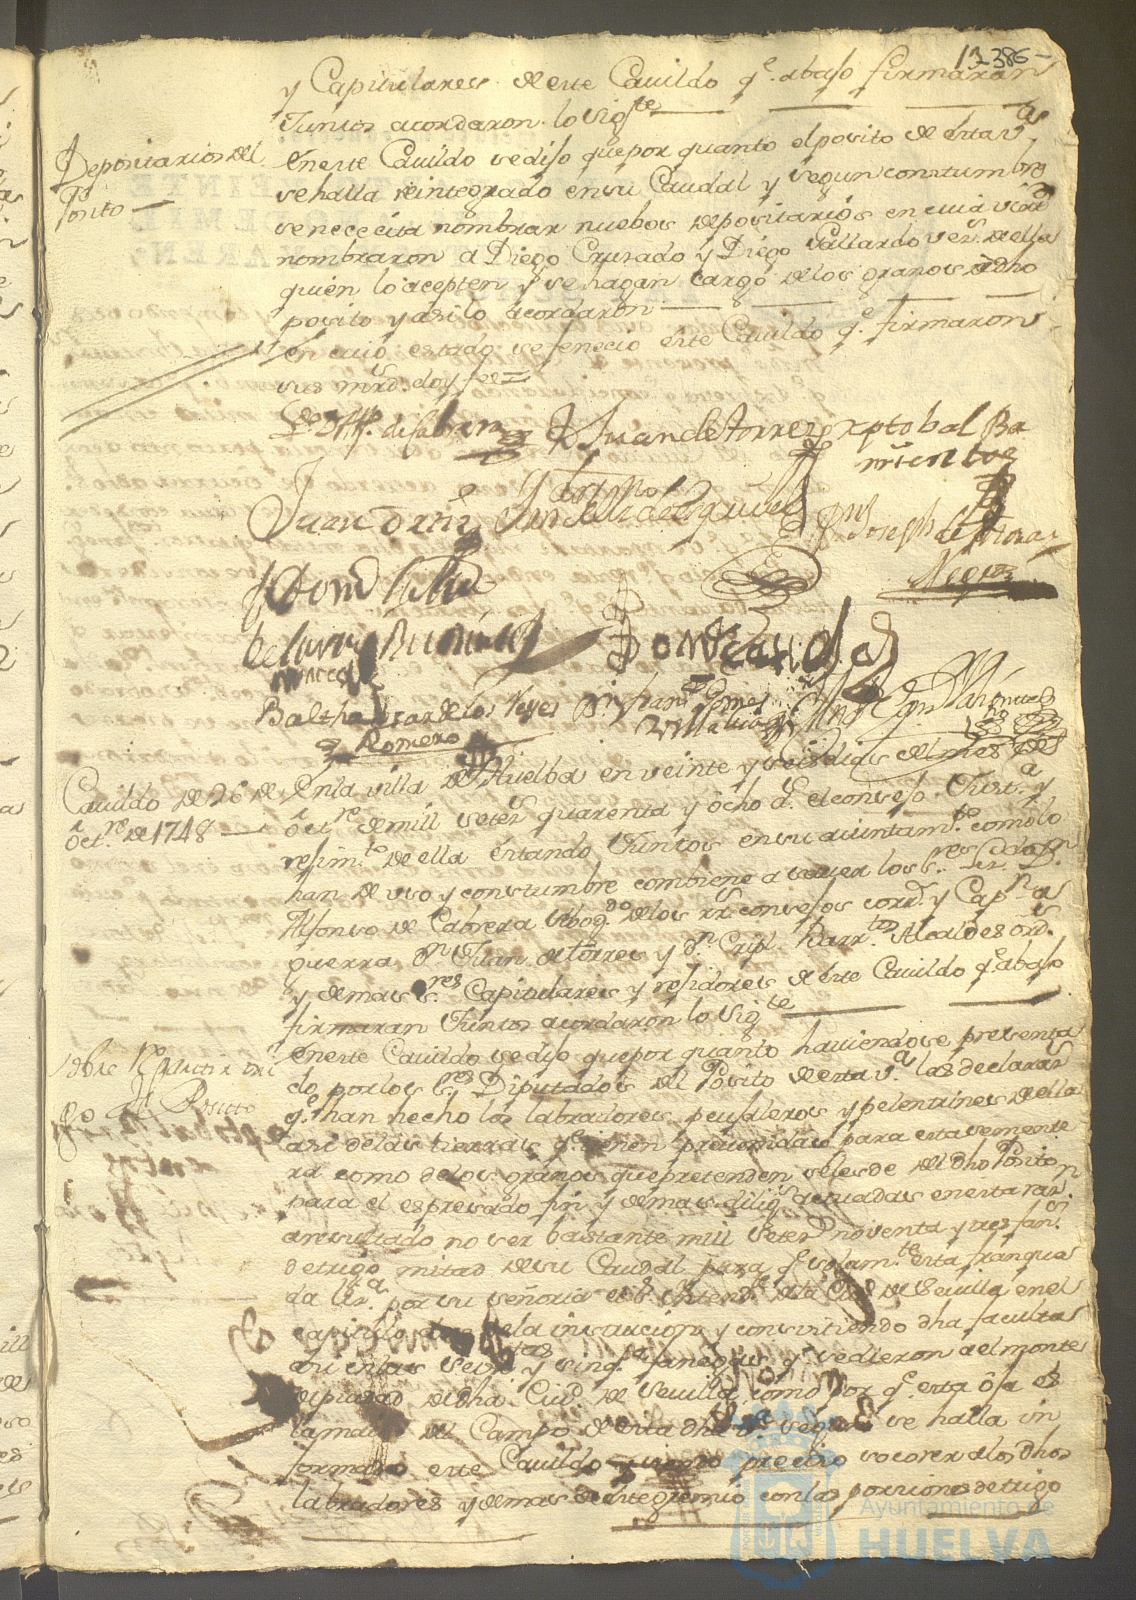 13 386
y Capitulares de este Cavildo q.e abajo firmaran
Juntos acordaron lo sig.te
Depositarios del
Posito
En este Cavildo se dijo que por quanto el posito de esta V.a
se halla reintegrado en su Caudal y segun constumbre
se nececita nombrar nuebos depositarios en cuia virt.d
nombraron a Diego Cruzado y Diego Gallardo vez.s de ella
quien lo acepten y se hagan cargo de los granos de dho
posito y asi lo acordaron
en cuio estado se fenecio este Cavildo q.e firmaron
sus mrd.s doy fee
Juan de Torres Xptobal Ba
rrientos
Juan Ortiz
Joseph de
Balthasar de los Reyes
y Romero
Cavildo de 26 de
Oct.re de 1748
En la villa de Huelba en veinte y seis dias del mes de
Oct.re de mill setez.s quarenta y ocho a.s el consejo Just.a y
rejim.to de ella estando Juntos en su aiuntam.to como lo
han de uso y constumbre combiene a saver los S.res Lz.do D.n
Alfonso de Cabrera Abog.do de los R.s consejos corr.or y Cap.n a
guerra D.n Juan de Torres y D.n Cripl. Barr.tos Alcaldes ord.s
y demas S.res Capitulares y rejidores de este Cavildo q.e abajo
firmaran Juntos acordaron lo sig.te
sobre
el Posito
En este Cavildo se dijo que por quanto haviendose presenta
do por los S.res Diputados del Posito de esta V.a las declaraz.s
q.e han hecho los labradores peujaleros y pelentrines de ella
asi de las tierras q.e tienen prevenidas para esta semente
ra como de los granos que pretenden se les de del dho Posito
para el espresado fin y demas dilig.s actuadas en esta raz.n
a resultado no ser bastante mill setez.s noventa y tres fan.s
de trigo mitad de su Caudal para q.e solam.te esta franquea
da liz.a por su señoria el S.r Intend.te de la Ciu.d de Sevilla en el
capitulo de la instrucion y consistiendo dha facultad
asi en las seis y sinq.ta fanegas q.e se dieron a el monte
de piedad de dha Ciu.d de Sevilla como por q.e esta
la mas del Campo de esta dha V.a segun se halla in
formado este Cavildo y siendo precizo socorer a los dhos
labradores y demas de este gremio con las porsiones de trigo
Ayuntamiento de
HUELVA